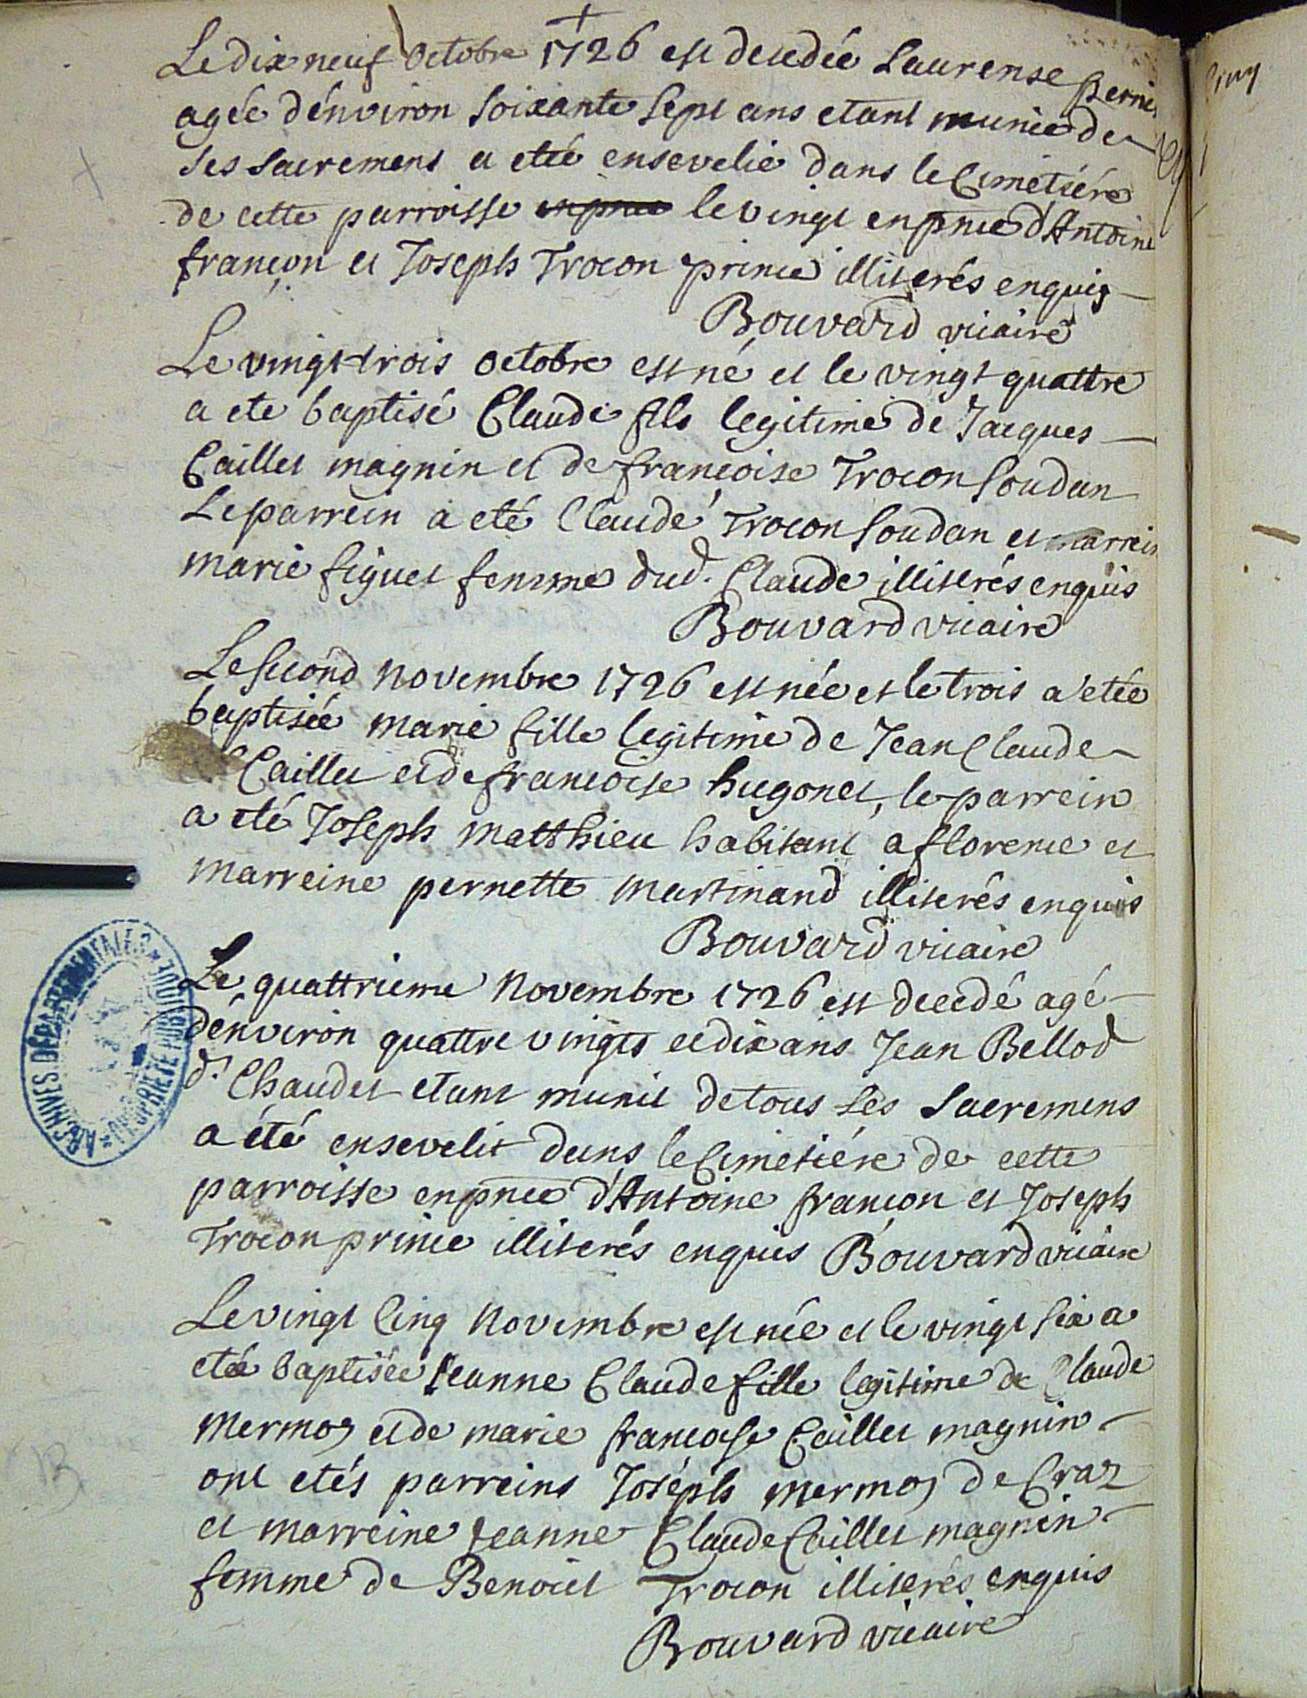 Le dix neuf octobre 1726 est decedée Laurense
agée d'énviron soixante sept ans etant munie de
ses sacremens a etée ensevelie dans le Cimetiére
de cette parroisse le vingt en pnce d'Antoine
françon et Joseph Trocon prince illiterés enquis
Bouvard vicaire
Le vingt trois octobre est né et le vingt quattre
a ete baptisé Claude fils legitime de Jacques
Caillet magnin et de francoise Trocon soudan
Le parrein a eté Claude Trocon soudan et marrein
marie figuet femme dud. Claude illiterés enquis
Bouvard vicaire
Le second novembre 1726 est née et le trois a etée
baptisée marie fille legitime de Jean Claude
Caillet et de francoise hugonet, le parrein
a eté Joseph matthieu habitant a florence et
marreine pernette martinand illiterés enquis
Bouvard vicaire
Le quattrieme Novembre 1726 est decedé agé
d'énviron quattre vingts et dix ans Jean Bellod
d. Chaudet etant munit de tous ses sacremens
a été ensevelit dans le Cimetiére de cette
parroisse en pnce d'Antoine françon et Joseph
Trocon prince illiterés enquis Bouvard vicaire
Le vingt Cinq Novembre est née et le vingt six a
etée baptisée Jeanne Claude fille legitime de Claude
Mermoz et de marie francoise Caillet magnin
ont etés parreins Joséph mermoz de Craz
et marreine Jeanne Claude Caillet magnin
femme de Benoict Trocon illiterés enquis
Bouvard vicaire
ARCHIVES DÉPARTEMENTALES
PROPRIÉTÉ PUBLIQUE